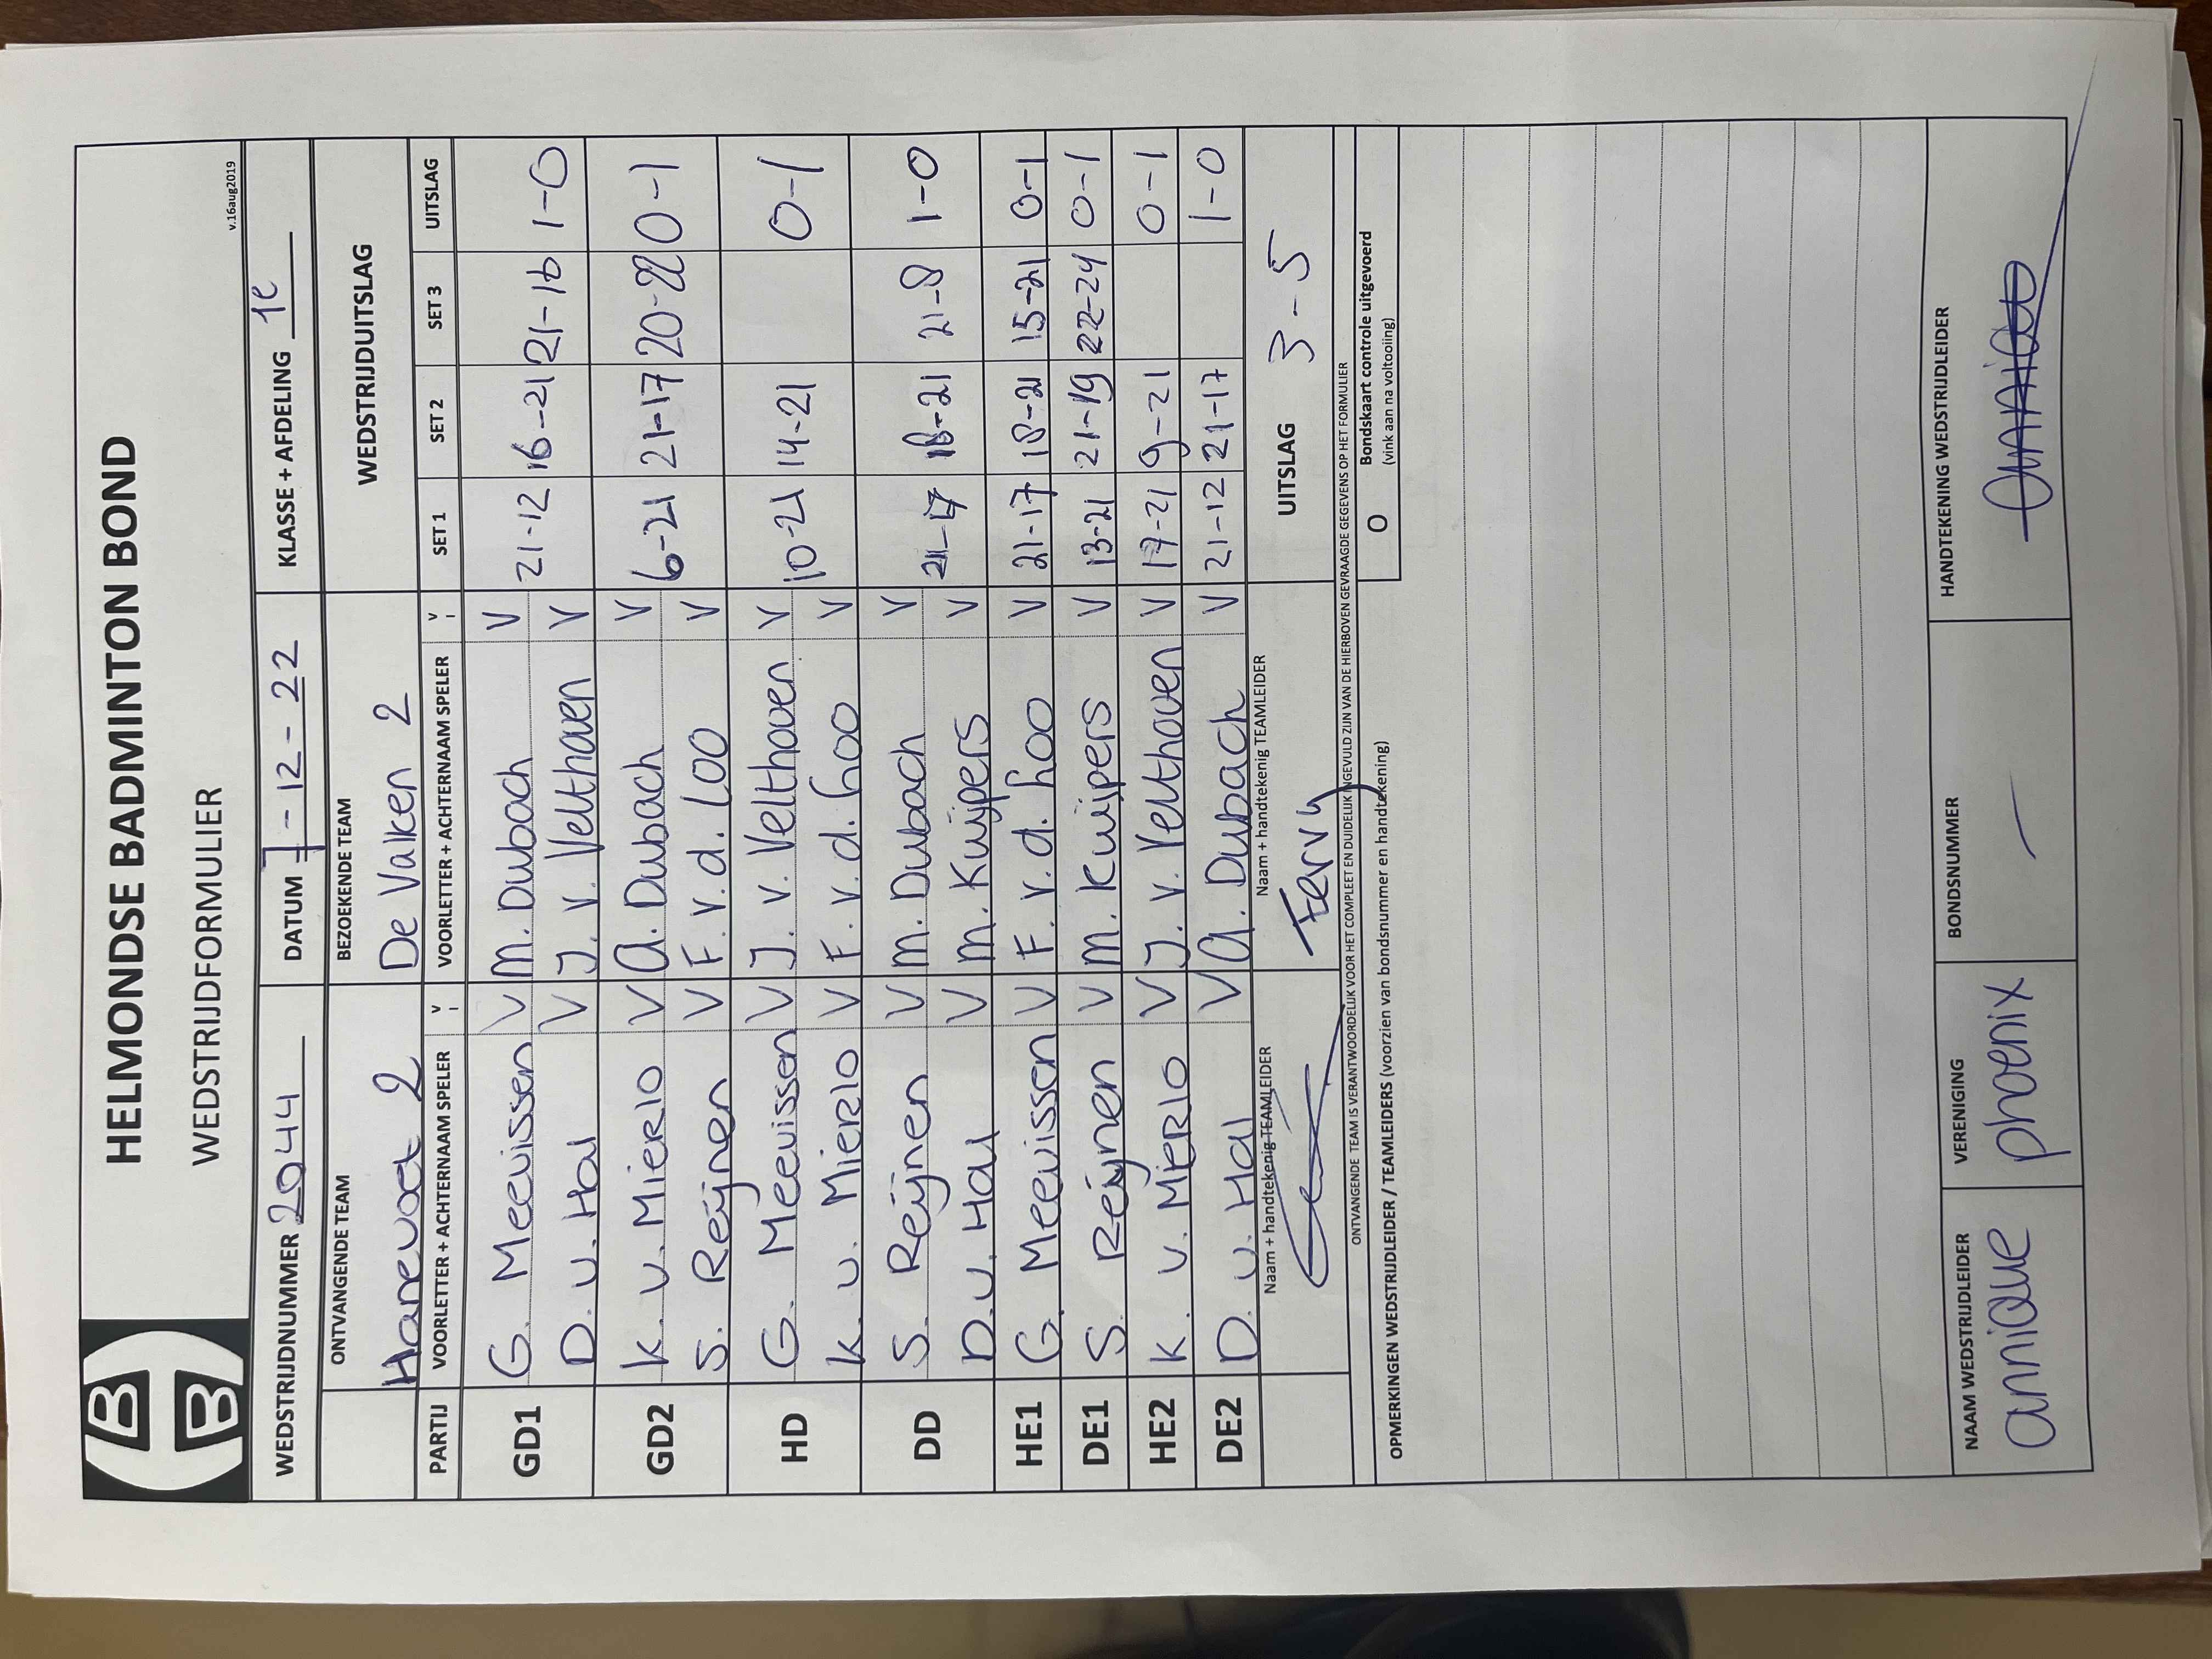 HELMONDSE BADMINTON BOND
WEDSTRIJDFORMULIER
v.16aug2019
WEDSTRIJDNUMMER 2044 DATUM 7-12-22 KLASSE + AFDELING 1e
ONTVANGENDE TEAM BEZOEKENDE TEAM WEDSTRIJDUITSLAG
Hanevoet 2 De Valken 2
PARTIJ VOORLETTER + ACHTERNAAM SPELER V VOORLETTER + ACHTERNAAM SPELER V SET 1 SET 2 SET 3 UITSLAG
GD1 G. Meeuissen V M. Dubach V 21-12 16-21 21-16 1-0
D. v. Hal V J. v. Velthoven V
GD2 K. v. Mierlo V A. Dubach V 6-21 21-17 20-22 0-1
S. Reijnen V F. v. d. Loo V
HD G. Meeuissen V J. v. Velthoven V 10-21 14-21 0-1
K. v. Mierlo V F. v. d. Loo V
DD S. Reijnen V M. Dubach V 21-17 18-21 21-8 1-0
D. v. Hal V M. Kuijpers V
HE1 G. Meeuissen V F. v. d. Loo V 21-17 18-21 15-21 0-1
DE1 S. Reijnen V M. Kuijpers V 13-21 21-19 22-24 0-1
HE2 K. v. Mierlo V J. v. Velthoven V 17-21 9-21 0-1
DE2 D. v. Hal V A. Dubach V 21-12 21-17 1-0
Naam + handtekenig TEAMLEIDER Naam + handtekenig TEAMLEIDER UITSLAG 3-5
Ferry
ONTVANGENDE TEAM IS VERANTWOORDELIJK VOOR HET COMPLEET EN DUIDELIJK INGEVULD ZIJN VAN DE HIERBOVEN GEVRAAGDE GEGEVENS OP HET FORMULIER
O Bondskaart controle uitgevoerd
(vink aan na voltooiing)
OPMERKINGEN WEDSTRIJDLEIDER / TEAMLEIDERS (voorzien van bondsnummer en handtekening)
NAAM WEDSTRIJDLEIDER VERENIGING BONDSNUMMER HANDTEKENING WEDSTRIJDLEIDER
annique phoenix — annique